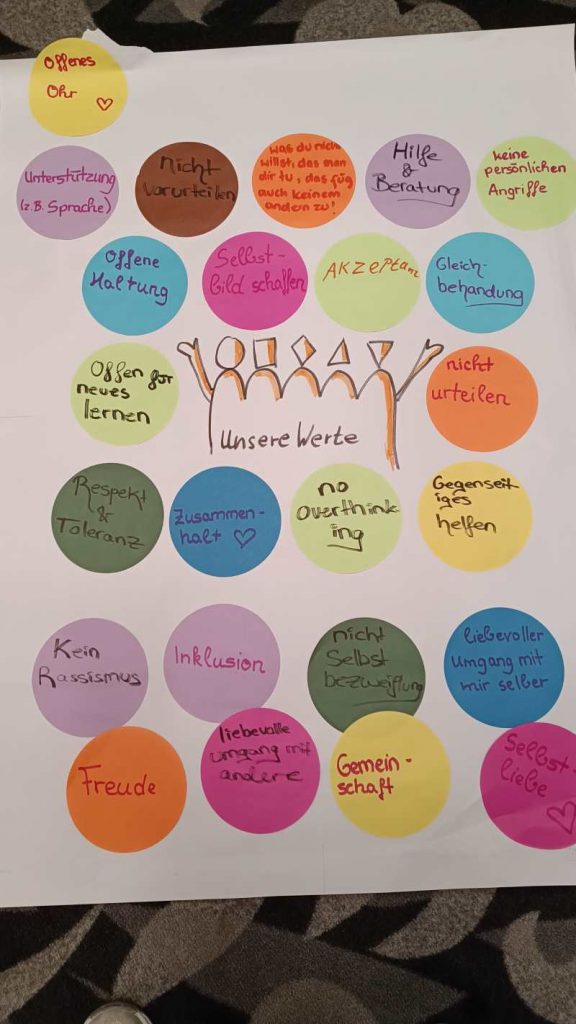 Offenes
Ohr
Unterstützung
(z.B. Sprache)
Nicht
vorurteilen
was du nich
willst, das man
dir tu, das füg
auch keinem
andern zu!
Hilfe
&
Beratung
keine
persönlichen
Angriffe
Offene
Haltung
Selbst-
bild schaffen
AKZEPtanz
Gleich-
behandung
Offen für
neues
lernen
unsere Werte
nicht
urteilen
Respekt
&
Toleranz
Zusammen-
halt
no
overthink
ing
Gegenseit-
iges
helfen
Kein
Rassismus
Inklusion
nicht
Selbst
bezweiflung
liebevoller
umgang mit
mir selber
Freude
liebevolle
umgang mit
andere
Gemein-
schaft
Selbst-
liebe